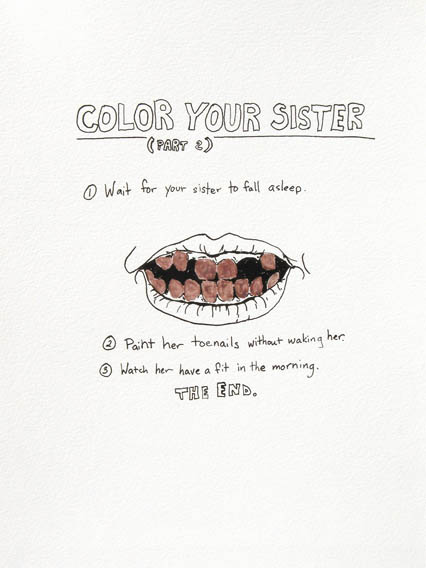 COLOR YOUR SISTER
(PART 2)
① Wait for your sister to fall asleep.
② Paint her toenails without waking her.
③ Watch her have a fit in the morning.
THE END.